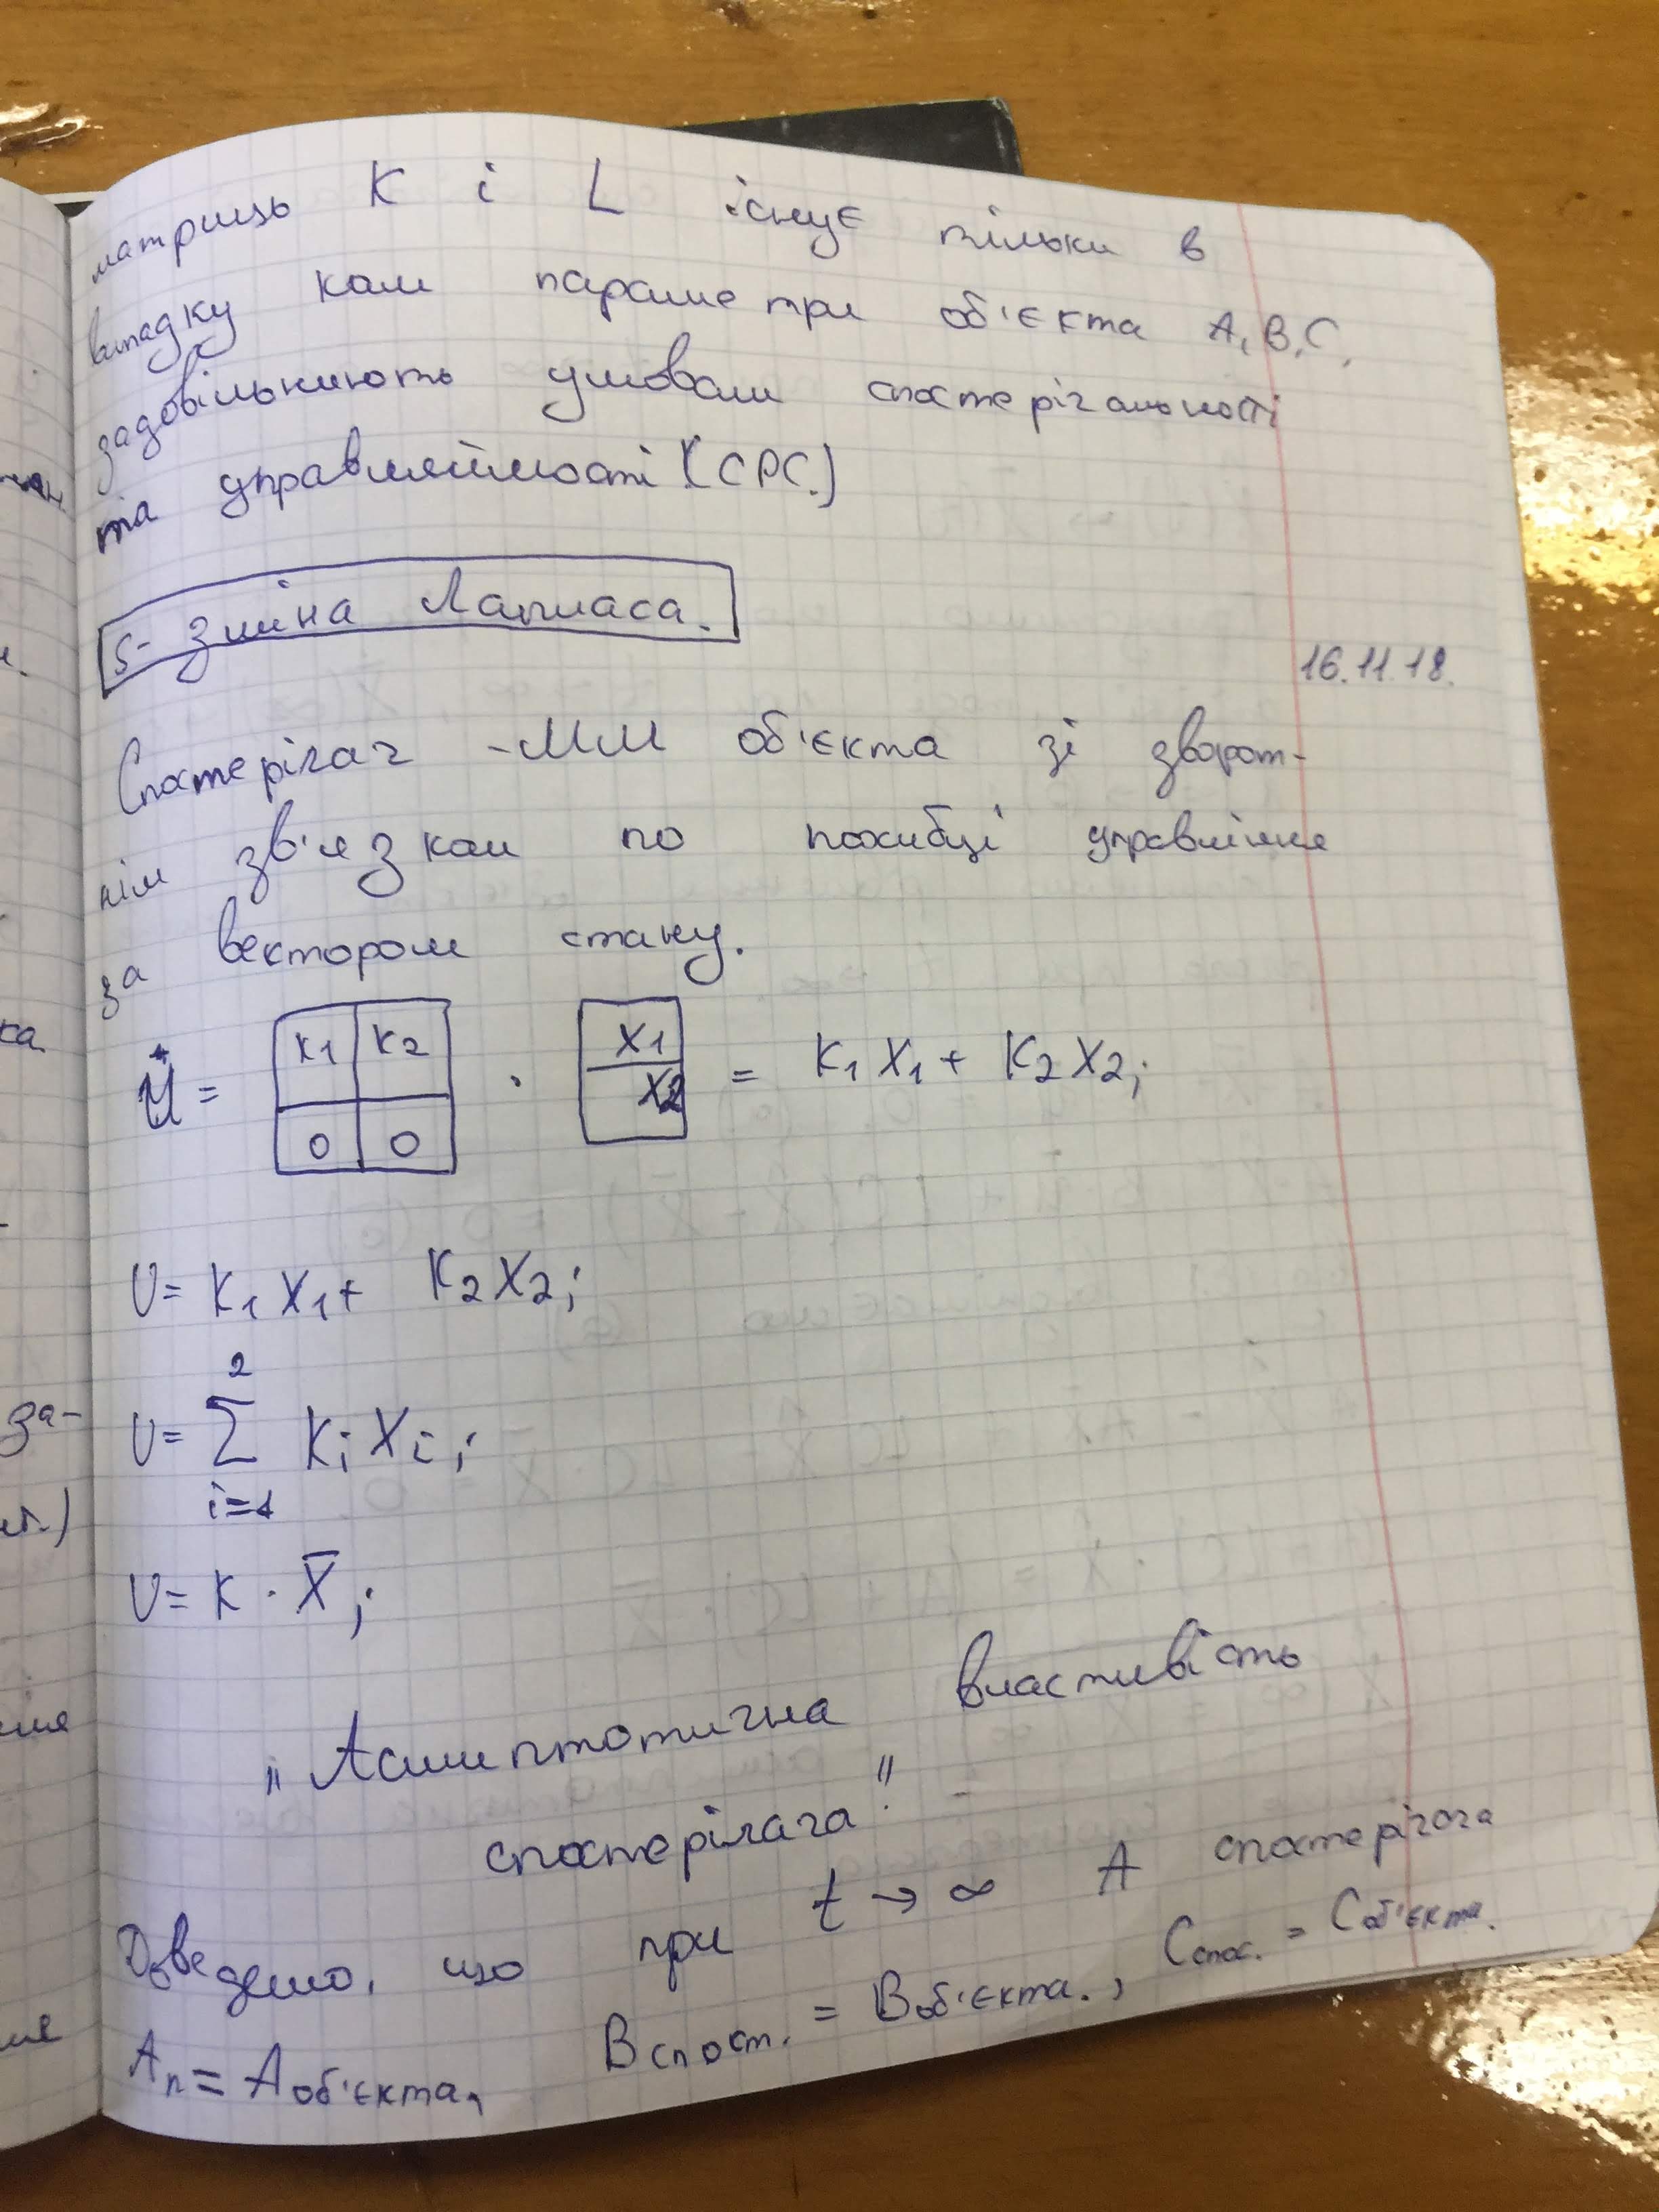 матриць K і L існує тільки в
випадку коли параметри об'єкта A, B, C,
задовільнюють умовам спостерігальності
та управляємості (СРС.)
S- Зміна Лапласа.
16.11.18.
Спостерігач - ММ об'єкта зі зворот-
нім зв'язком по похибці управління
за вектором стану.
U = K1 K2 0 0 · X1 X2 = K1 X1 + K2 X2;
U = K1 X1 + K2 X2;
2
U = Σ Ki Xi;
i=1
U = K · X̄;
„Асимптотична властивість
спостерігача"
Доведемо, що при t → ∞ A спостерігача
An = A об'єкта, B спост. = B об'єкта., C спос. = C об'єкта.